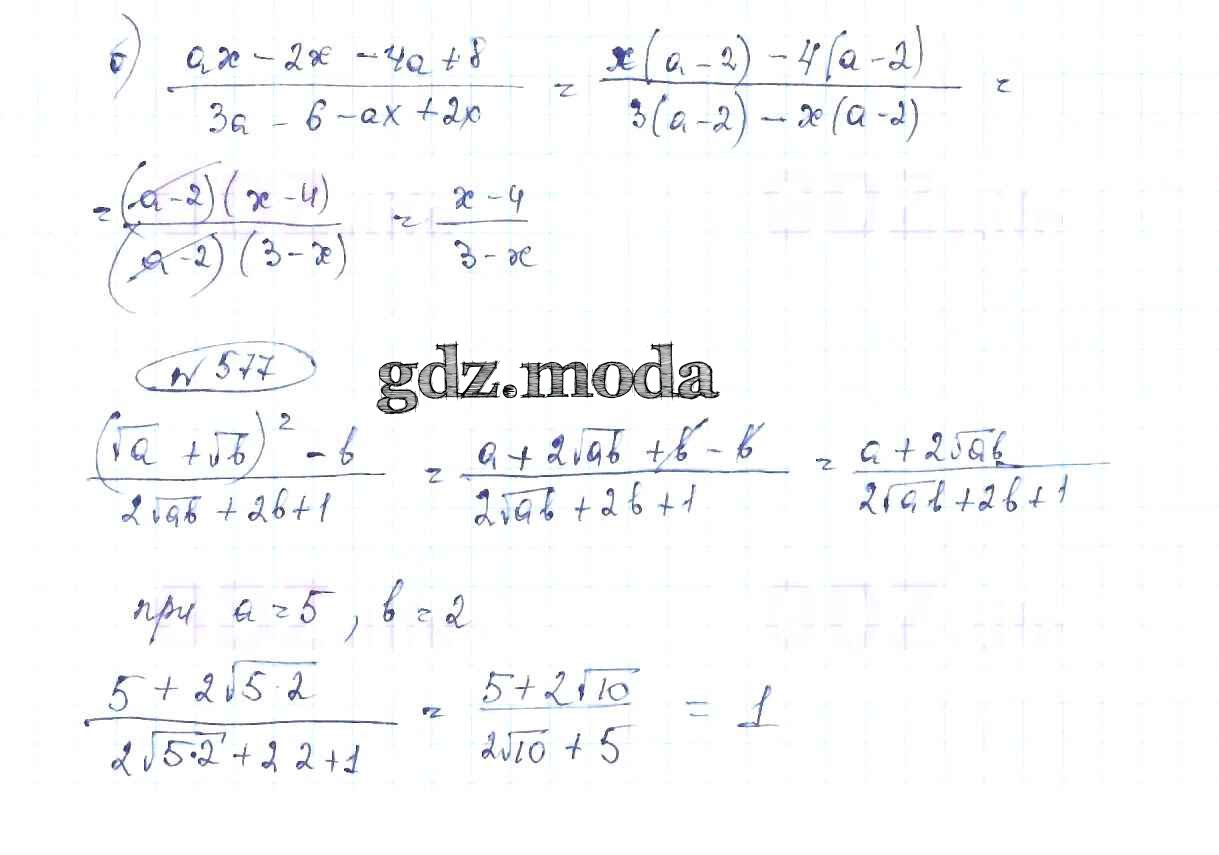 б) (ax - 2x - 4a + 8)/(3a - 6 - ax + 2x) = (x(a - 2) - 4(a - 2))/(3(a - 2) - x(a - 2)) =
= ((a - 2)(x - 4))/((a - 2)(3 - x)) = (x - 4)/(3 - x)
№ 577
gdz.moda
((√a + √b)² - b)/(2√ab + 2b + 1) = (a + 2√ab + b - b)/(2√ab + 2b + 1) = (a + 2√ab)/(2√ab + 2b + 1)
при a = 5, b = 2
(5 + 2√5·2)/(2√5·2 + 2 2 + 1) = (5 + 2√10)/(2√10 + 5) = 1